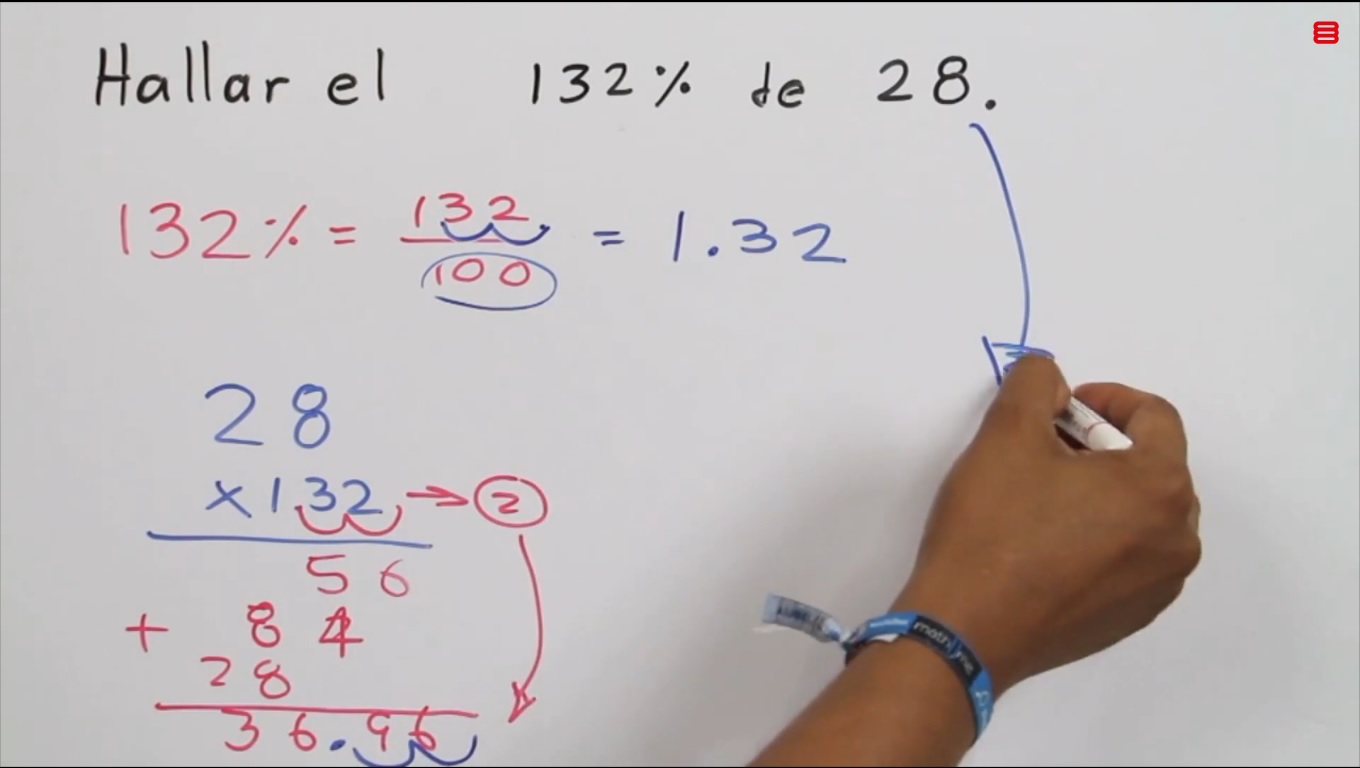 Hallar el 132% de 28.
132% = 132/100 = 1.32
28
x132 → 2
56
+ 84
28
36.96